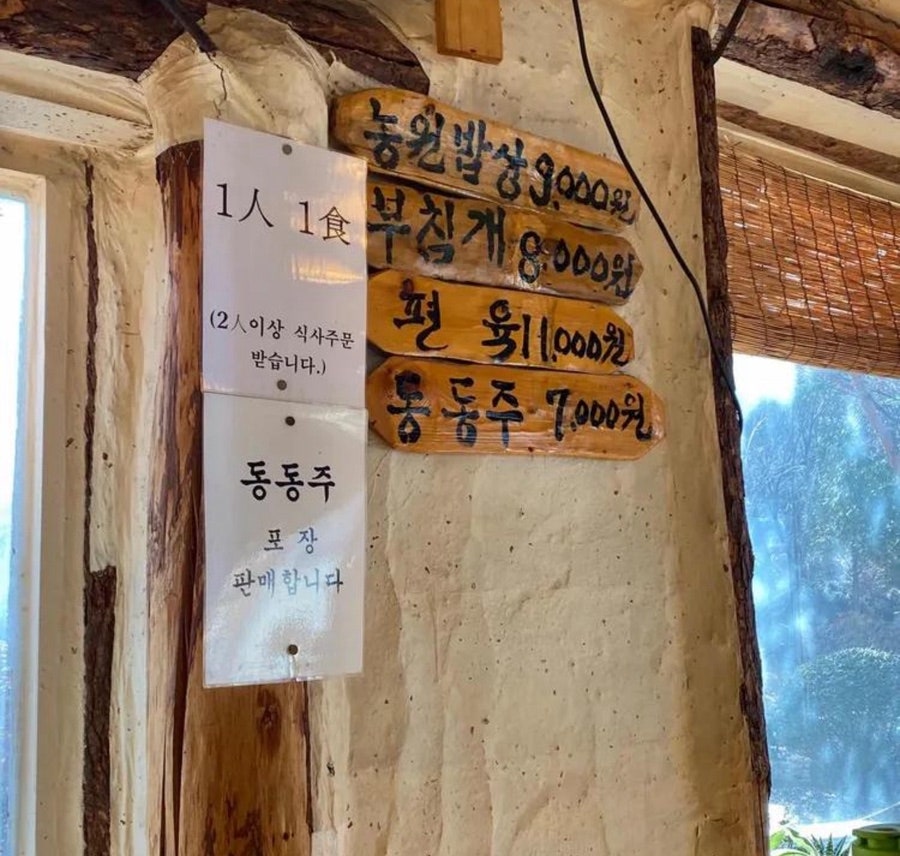 1人 1食
(2人이상 식사주문
받습니다.)
동동주
포 장
판매합니다
농원밥상 9,000원
부침개 8,000원
편 육 11,000원
동동주 7,000원